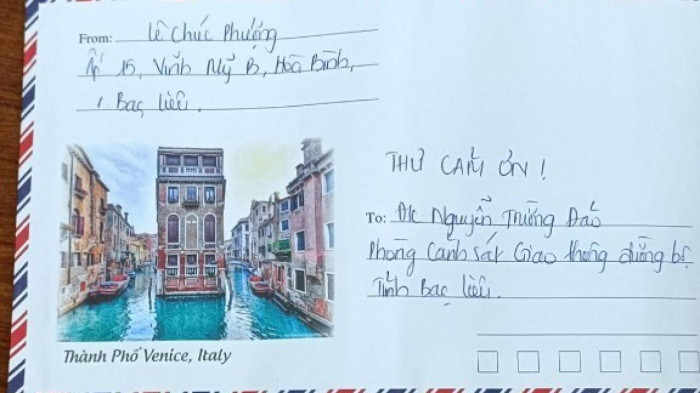 From: Lê Chúc Phượng
Ấp 15, Vĩnh Mỹ B, Hoà Bình,
Bạc Liêu.
THƯ CẢM ƠN!
To: Đ/c Nguyễn Trường Đảo
Phòng Cảnh sát Giao thông đường bộ
Tỉnh Bạc Liêu.
Thành Phố Venice, Italy